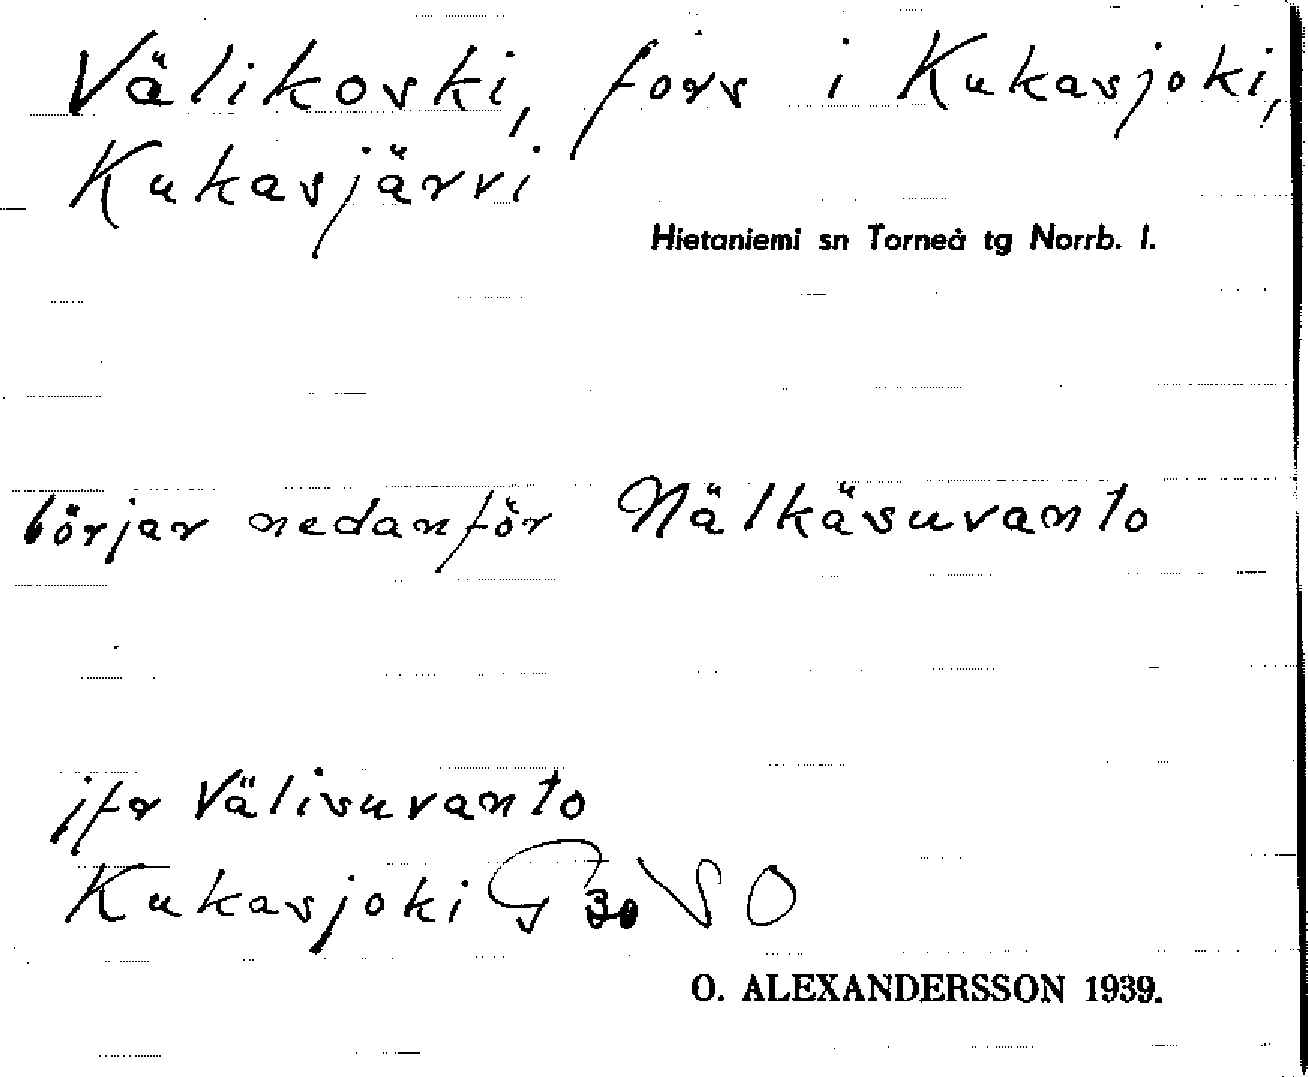 Välikoski, fors i Kukasjoki,
Kukasjärvi
Hietaniemi sn Torneå tg Norrb. l.
börjar nedanför Nälkäsuvanto
jfr Välisuvanto
Kukasjoki G 30 SO
O. ALEXANDERSSON 1939.